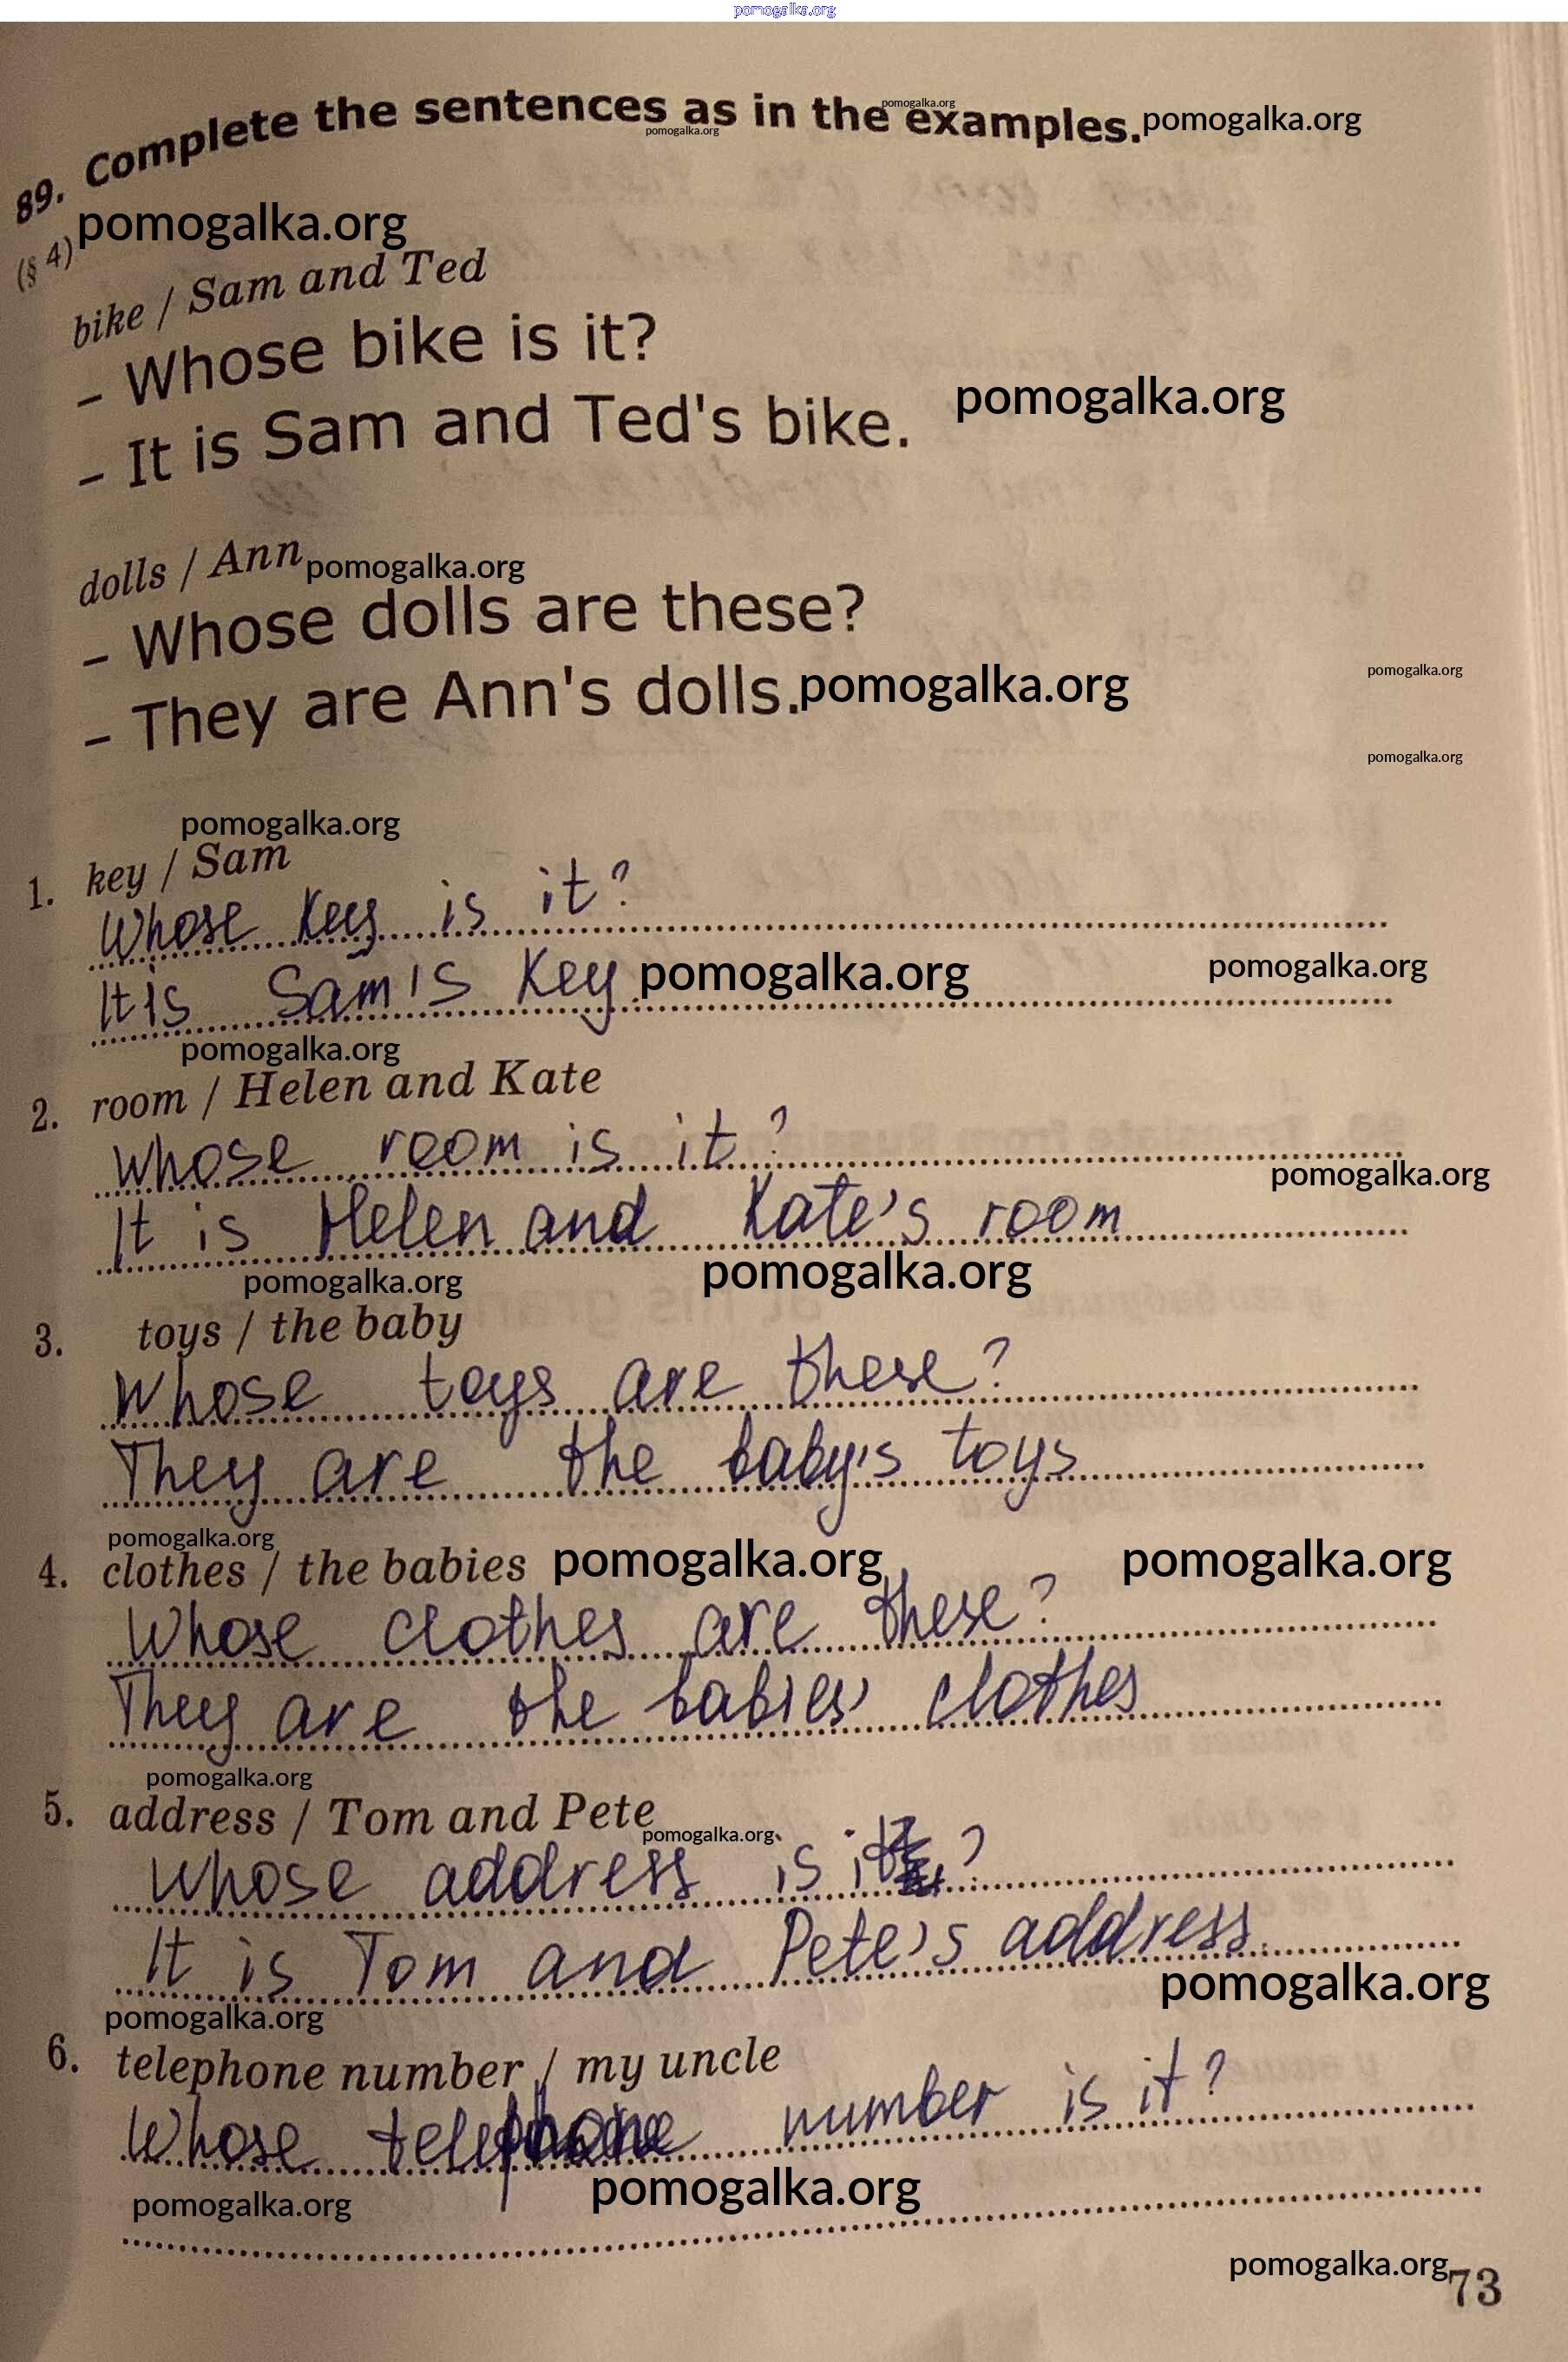 pomogalka.org
89. Complete the sentences as in the examples. pomogalka.org
pomogalka.org
pomogalka.org
(§ 4) pomogalka.org
bike / Sam and Ted
– Whose bike is it?
– It is Sam and Ted's bike. pomogalka.org
dolls / Ann pomogalka.org
– Whose dolls are these?
– They are Ann's dolls. pomogalka.org
pomogalka.org
pomogalka.org
pomogalka.org
1. key / Sam
Whose key is it?
It is Sam's key pomogalka.org pomogalka.org
pomogalka.org
2. room / Helen and Kate
Whose room is it?
pomogalka.org
It is Helen and Kate's room
pomogalka.org pomogalka.org
3. toys / the baby
Whose toys are these?
They are the baby's toys
pomogalka.org
4. clothes / the babies pomogalka.org pomogalka.org
Whose clothes are these?
They are the babies' clothes
pomogalka.org
5. address / Tom and Pete
pomogalka.org
Whose address is it ?
It is Tom and Pete's address.
pomogalka.org
pomogalka.org
6. telephone number / my uncle
Whose telephone number is it?
pomogalka.org pomogalka.org
pomogalka.org
73